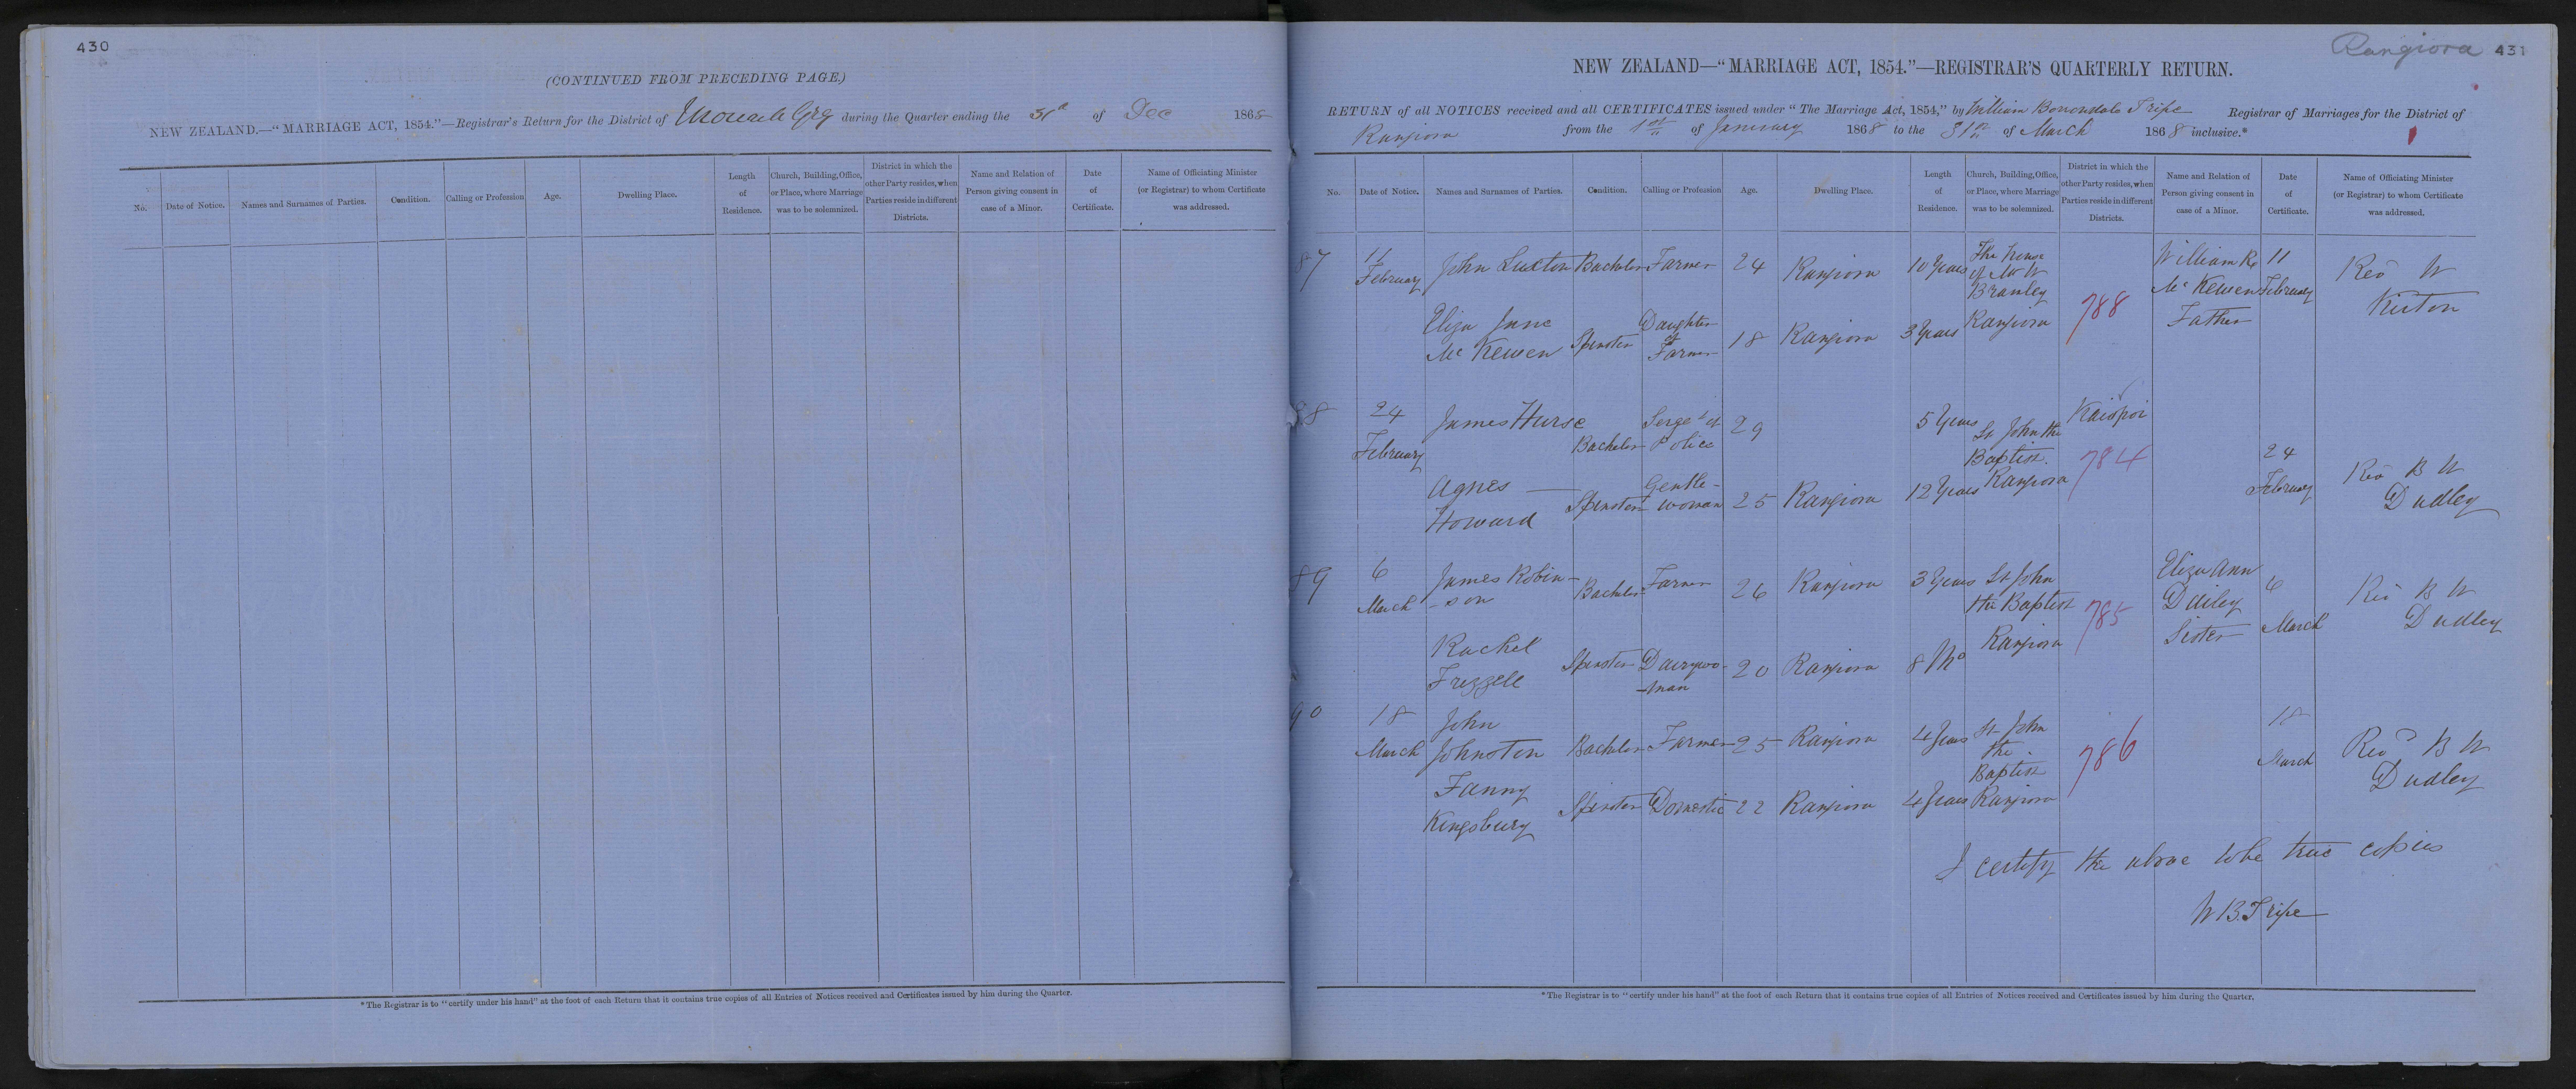 430
(CONTINUED FROM PRECEDING PAGE.)
NEW ZEALAND.—"MARRIAGE ACT, 1854."—Registrar's Return for the District of during the Quarter ending the 31st of Dec 1868
No. Date of Notice. Names and Surnames of Parties. Condition. Calling or Profession Age. Dwelling Place. Length of Residence. Church, Building, Office, or Place, where Marriage was to be solemnized. District in which the other Party resides, when Parties reside in different Districts. Name and Relation of Person giving consent in case of a Minor. Date of Certificate. Name of Officiating Minister (or Registrar) to whom Certificate was addressed.
*The Registrar is to "certify under his hand" at the foot of each Return that it contains true copies of all Entries of Notices received and Certificates issued by him during the Quarter.
Rangiora 431
NEW ZEALAND—"MARRIAGE ACT, 1854."—REGISTRAR'S QUARTERLY RETURN.
RETURN of all NOTICES received and all CERTIFICATES issued under "The Marriage Act, 1854," by William Tripe Registrar of Marriages for the District of
Rangiora from the 1st of January 1868 to the 31st of March 1868 inclusive.*
No. Date of Notice. Names and Surnames of Parties. Condition. Calling or Profession Age. Dwelling Place. Length of Residence. Church, Building, Office, or Place, where Marriage was to be solemnized. District in which the other Party resides, when Parties reside in different Districts. Name and Relation of Person giving consent in case of a Minor. Date of Certificate. Name of Officiating Minister (or Registrar) to whom Certificate was addressed.
87 11 February John Luxton Bachelor Farmer 24 Rangiora 10 Years The house of Mr W Branley Rangiora 788 William McKewen Father 11 February Rev W Kirton
Eliza Jane McKewen Spinster Daughter of Farmer 18 Rangiora 3 Years
88 24 February James Hurse Bachelor Serget of Police 29 5 Years St John the Baptist Rangiora Kaiapoi 784 24 February Rev B W Dudley
Agnes Howard Spinster Gentle-woman 25 Rangiora 12 Years
89 6 March James Robin-son Bachelor Farmer 26 Rangiora 3 Years St John the Baptist Rangiora 785 Eliza Ann Dailey Sister 6 March Rev B W Dudley
Rachel Frizzell Spinster Dairywo-man 20 Rangiora 8 Mo
90 18 March John Johnston Bachelor Farmer 25 Rangiora 4 Years St John the Baptist Rangiora 786 18 March Revd B W Dudley
Fanny Kingsbury Spinster Domestic 22 Rangiora 4 Years
I certify the above to be true copies
W B Tripe
*The Registrar is to "certify under his hand" at the foot of each Return that it contains true copies of all Entries of Notices received and Certificates issued by him during the Quarter.